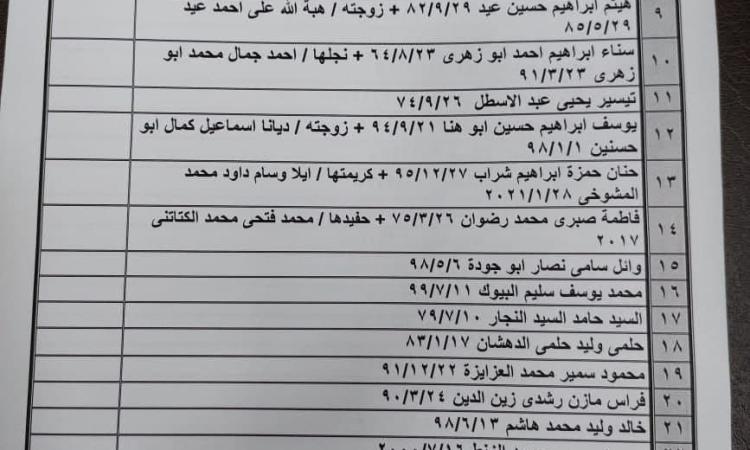 ٩ هيثم ابراهيم حسين عيد ٨٢/٩/٢٩ + زوجته / هبة الله على احمد عيد
٨٥/٥/٢٩
١٠ سناء ابراهيم احمد ابو زهرى ٦٤/٨/٢٣ + نجلها / احمد جمال محمد ابو
زهرى ٩١/٣/٢٣
١١ تيسير يحيى عبد الاسطل ٧٤/٩/٢٦
١٢ يوسف ابراهيم حسين ابو هنا ٩٤/٩/٢١ + زوجته / ديانا اسماعيل كمال ابو
حسنين ٩٨/١/١
١٣ حنان حمزة ابراهيم شراب ٩٥/١٢/٢٧ + كريمتها / ايلا وسام داود محمد
المشوخى ٢٠٢١/١/٢٨
١٤ فاطمة صبرى محمد رضوان ٧٥/٣/٢٦ + حفيدها / محمد فتحى محمد الكتاتنى
٢٠١٧
١٥ وائل سامى نصار ابو جودة ٩٨/٥/٦
١٦ محمد يوسف سليم البيوك ٩٩/٧/١١
١٧ السيد حامد السيد النجار ٧٩/٧/١٠
١٨ حلمى وليد حلمى الدهشان ٨٣/١/١٧
١٩ محمود سمير محمد العزايزة ٩١/١٢/٢٢
٢٠ فراس مازن رشدى زين الدين ٩٠/٣/٢٤
٢١ خالد وليد محمد هاشم ٩٨/٦/١٣
٢٠٠٠/٧/١٦